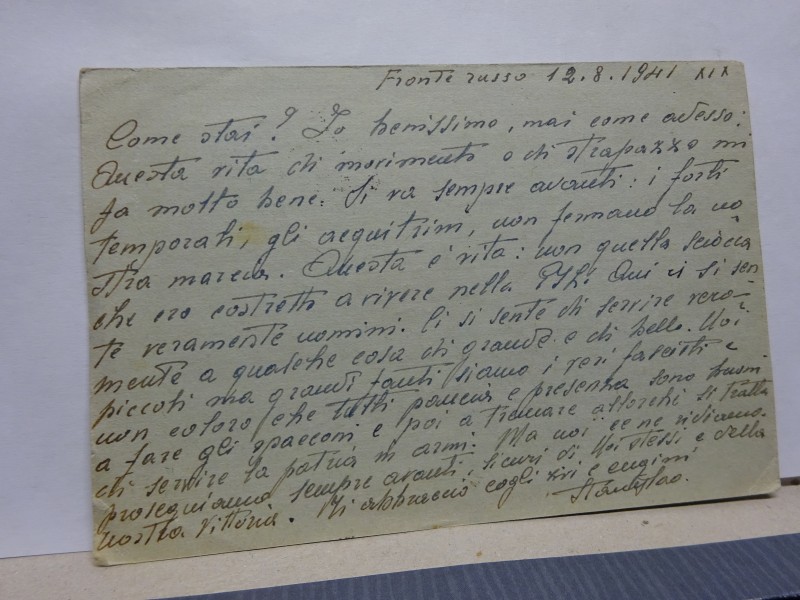 Fronte russo 12.8.1941 XIX
Come stai? Io benissimo, mai come adesso:
Questa vita di movimento e di strapazzo mi
fa molto bene. Si va sempre avanti: i forti
temporali, gli acquitrini, non fermano la no
stra marcia. Questa è vita: non quella sciocca
che ero costretto a vivere nella Qui ci si sen
te veramente uomini. Ci si sente di servire vera-
mente a qualche cosa di grande e di bello. Noi
piccoli ma grandi fanti siamo i veri fascisti e
non coloro che tutti pancia e presenza sono buoni
a fare gli spacconi e poi a tremare allorchè si tratta
di servire la patria in armi. Ma noi ce ne ridiamo.
proseguiamo sempre avanti, sicuri di Noi stessi e della
nostra Vittoria. Vi abbraccio cogli zii e cugini
Stanislao.